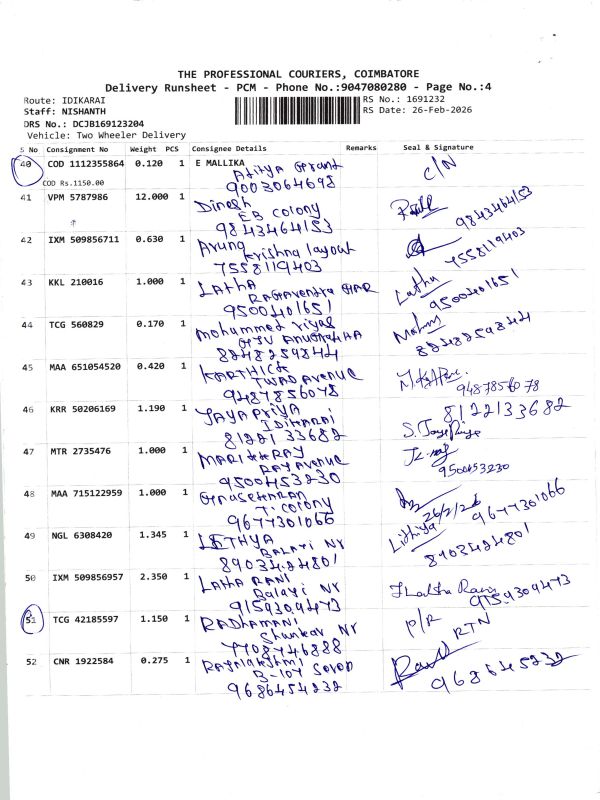 THE PROFESSIONAL COURIERS, COIMBATORE
Delivery Runsheet - PCM - Phone No.:9047080280 - Page No.:4
Route: IDIKARAI
Staff: NISHANTH
DRS No.: DCJB169123204
Vehicle: Two Wheeler Delivery
RS No.: 1691232
RS Date: 26-Feb-2026
S No Consignment No Weight PCS Consignee Details Remarks Seal & Signature
40 COD 1112355864 0.120 1 E MALLIKA C/N
COD Rs.1150.00
9003064698
41 VPM 5787986 12.000 1 Dinesh
EB Colony
9843464153 9843464153
42 IXM 509856711 0.630 1 Arung
Krishna layout
7558119403 7558119403
43 KKL 210016 1.000 1 LATHA Latha
9500401651 9500401651
44 TCG 560829 0.170 1 Mohammed riyas
8248259844 8248259844
45 MAA 651054520 0.420 1 KARTHICK
TWAD AVENUE
9487856078 9487856078
46 KRR 50206169 1.190 1 JAYAPRIYA 8122133682
IDIKARAI
8122133682
47 MTR 2735476 1.000 1
RAY AVENUE
9500453230 9500453230
48 MAA 715122959 1.000 1 GUNASEKARAN
T. COLONY 26/2/26
9677301066 9677301066
49 NGL 6308420 1.345 1
BALAJI NR
8903424801 8903424801
50 IXM 509856957 2.350 1 LATHA RANI
Balaji NR
9159309473 9159309473
51 TCG 42185597 1.150 1 RADHAMANI P/R
Shankar NR RTN
7708746888
52 CNR 1922584 0.275 1 Rajalakshmi
B-107
9686454232 9686545232